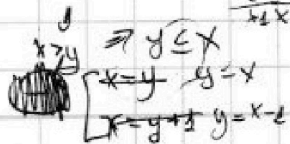 y
⇒ y ≤ X
x > y
[ x = y y = x
x = y + 1 y = x - 1